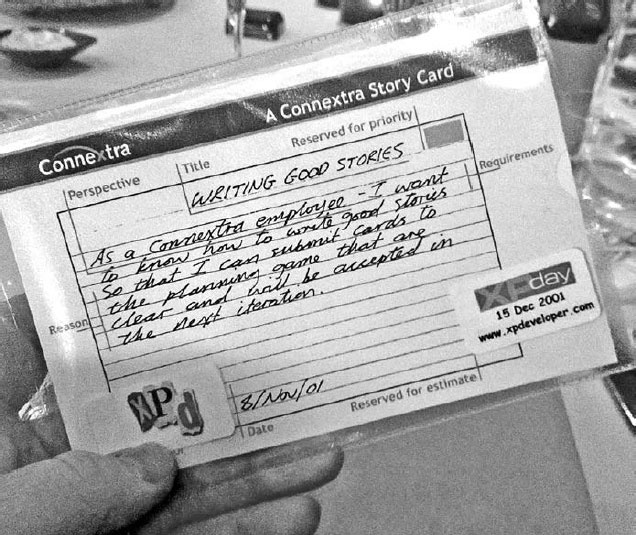 A Connextra Story Card
Connextra
Perspective
Title
Reserved for priority
Requirements
WRITING GOOD STORIES
As a Connextra employee - I want
to know how to write good stories
so that I can submit cards to
the planning game that are
clear and will be accepted in
the next iteration.
Reason
XP day
15 Dec 2001
www.xpdeveloper.com
XPd
8/Nov/01
Date
Reserved for estimate